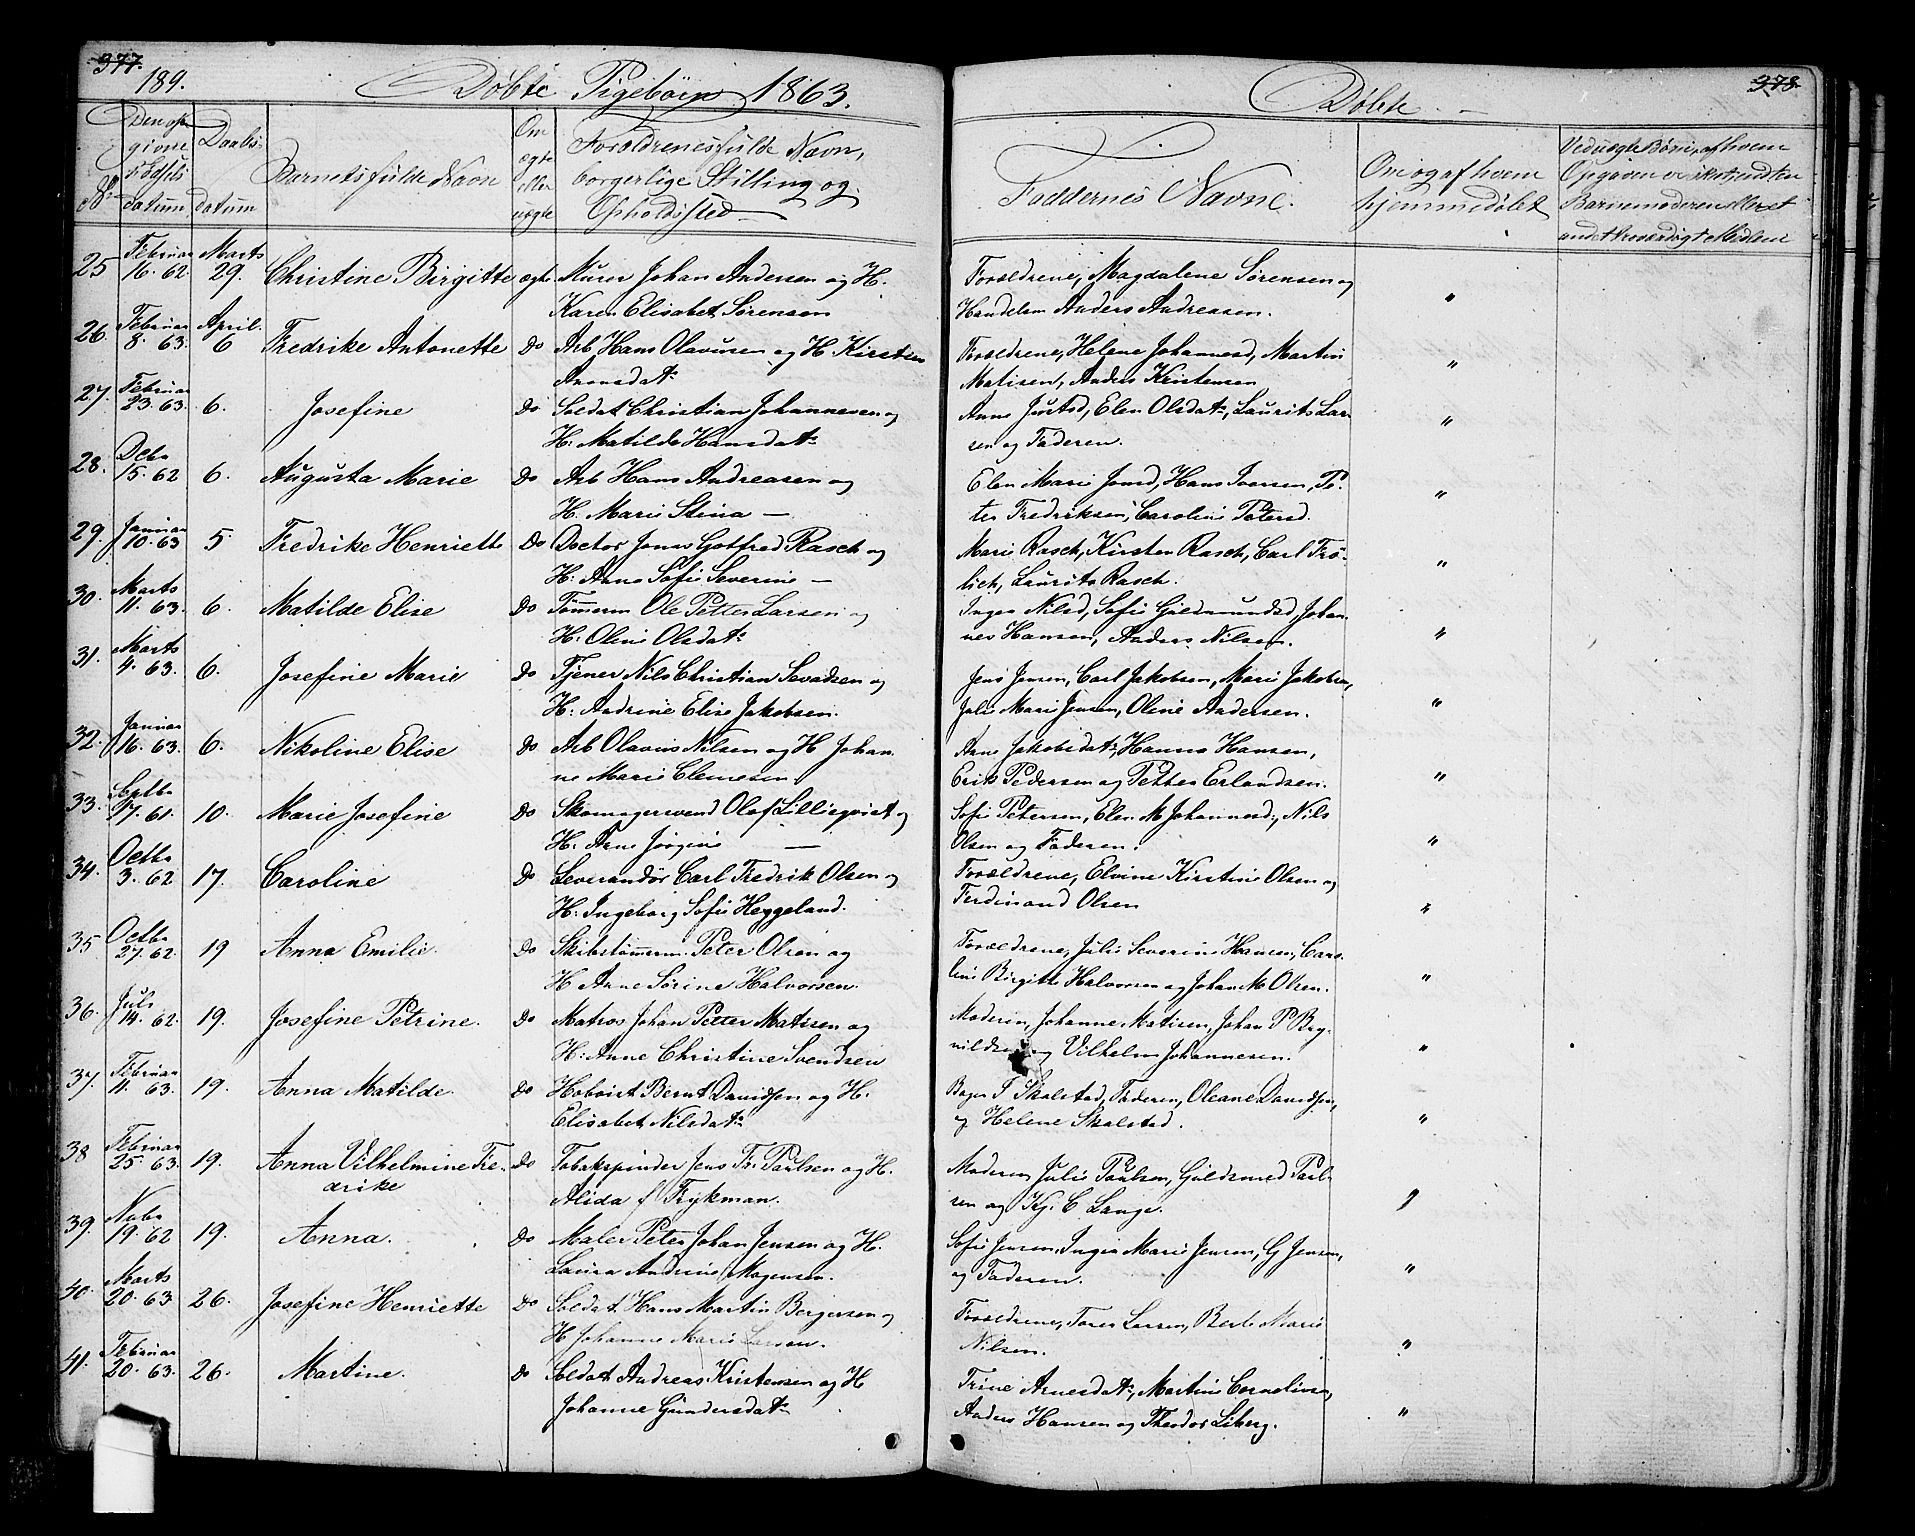 377.
189.
Døbte Pigebörn 1863.
No
Den opgivne Fødselsdatum
Daabsdatum
Barnets fulde Navn
Om ægte eller uægte
Forældrenes fulde Navn, borgerlige Stilling og Opholdssted
25 Februar 16. 62 Marts 29. Christine Birgitte ægte Murer Johan Andersen og H.
Karen Elisabet Sørensen
26. Februar 8. 63. April 6 Fredrike Antonette Do Arb Hans Olavusen og H. Kirstine
Aronsdat
27. Februar 23. 63. 6. Josefine Do Soldat Christian Johannesen og
H: Matilde Hansdatr
28. Decbr 15. 62 6. Augusta Marie Do Arb Hans Andreasen og
H. Marie Stina —
29. Januar 10. 63 5. Fredrike Henriette Do Doctor Jonas Gotfred Rasch og
H: Anne Sofie Severine —
30. Marts 11. 63. 6. Matilde Elise Do Tømmerm Ole Petter Larsen og
H: Oline Olsdatr
31. Marts 4. 63. 6. Josefine Marie Do Tjener Nils Christian Sevadsen og
H: Andrine Elise Jakobsen.
32. Januar 16. 63. 6. Nikoline Elise Do Arb Olavus Nilsen og H Johan
ne Marie Clemesen.
33. Septbr 17. 61. 10. Marie Josefine Do Skomagersvend Olof Lillieqvist og
H: Anne Jörgine —
34. Octbr 3. 62 17. Caroline Do Leverandör Carl Fredrik Olsen og
H: Ingeborg Sofie Heggeland.
35 Octbr 27. 62. 19 Anna Emilie. Do Skibstømerm. Peter Olsen og
H Anne Sörine Halvorsen.
36. Juli 14. 62. 19. Josefine Petrine. Do Matros Johan Petter Matisen og
H: Anne Christine Svendsen
37. Februar 11. 63. 19. Anna Matilde. Do Hoboist Bernt Davidsen og H.
Elisabet Nilsdatr
38 Februar 25. 63. 19. Anna Vilhelmine Fre- Do Tobakspinder Jens Fr. Paulsen og H.
drike Alida f Frykman.
39. Novbr 19. 62 19. Anna. Do Maler Peter Johan Jensen og H.
Laura Andrine Mogensen.
40. Marts 20. 63 26. Josefine Henriette Do Soldat Hans Martin Bergersen og
H Johanne Marie Larsen.
41. Februar 20. 63. 26. Martine. Do Soldat Andreas Kristensen og H
Johanne Gundersdatr
378.
Døbte —
Faddernes Navne.
Om og af hvem hjemmedøbt
Ved uægte Børn, af hvem Opgaven er skeet, endten Barnemoderen eller et andet troværdigt Middel
Forældrene, Magdalene Sørensen og "
Handelsm Anders Andreasen.
Forældrene, Helene Johannesd, Martin "
Matisen, Anders Kristensen
Anne Justsd, Elen Olsdatr, Laurits Lar- "
sen og Faderen.
Elen Marie Jonsd, Hans Iversen, Pe- "
ter Fredriksen, Caroline Petersd.
Marie Rasch, Kirsten Rasch, Carl Frö- "
lich, Laurits Rasch.
Inger Nilsd, Sofie Guldmundsd, Johan- "
nes Hansen, Anders Nilsen.
Jens Jensen, Carl Jakobsen, Marie Jakobsen, "
Julie Marie Jensen, Oline Andersen.
Anne Jakobsdatr, Hanna Hansen, "
Erik Pedersen og Petter Erlandsen.
Sofie Petersen, Elen M Johannesd, Nils "
Olsen og Faderen.
Forældrene, Elvine Kirstine Olsen og "
Ferdinand Olsen
Forældrene, Julie Severine Hansen, Caro- "
line Birgitte Halvorsen og Johan M Olsen.
Moderen, Johanne Matisen, Johan P "
og Vilhelm Johannesen.
Bager Skolstad, Faderen, Oleane Davidsen, "
og Helene Skolstad.
Moderen Julie Paulsen, Guldsmed Paul- "
sen og Kj. C Lange.
Sofie Jensen, Inger Marie Jensen, G Jensen, "
og Faderen.
Forældrene, Larsen, Berte Marie "
Nilsen.
Trine Arnesdatr, Martine Corneliusen, "
Anders Hansen og Theodor Liberg.